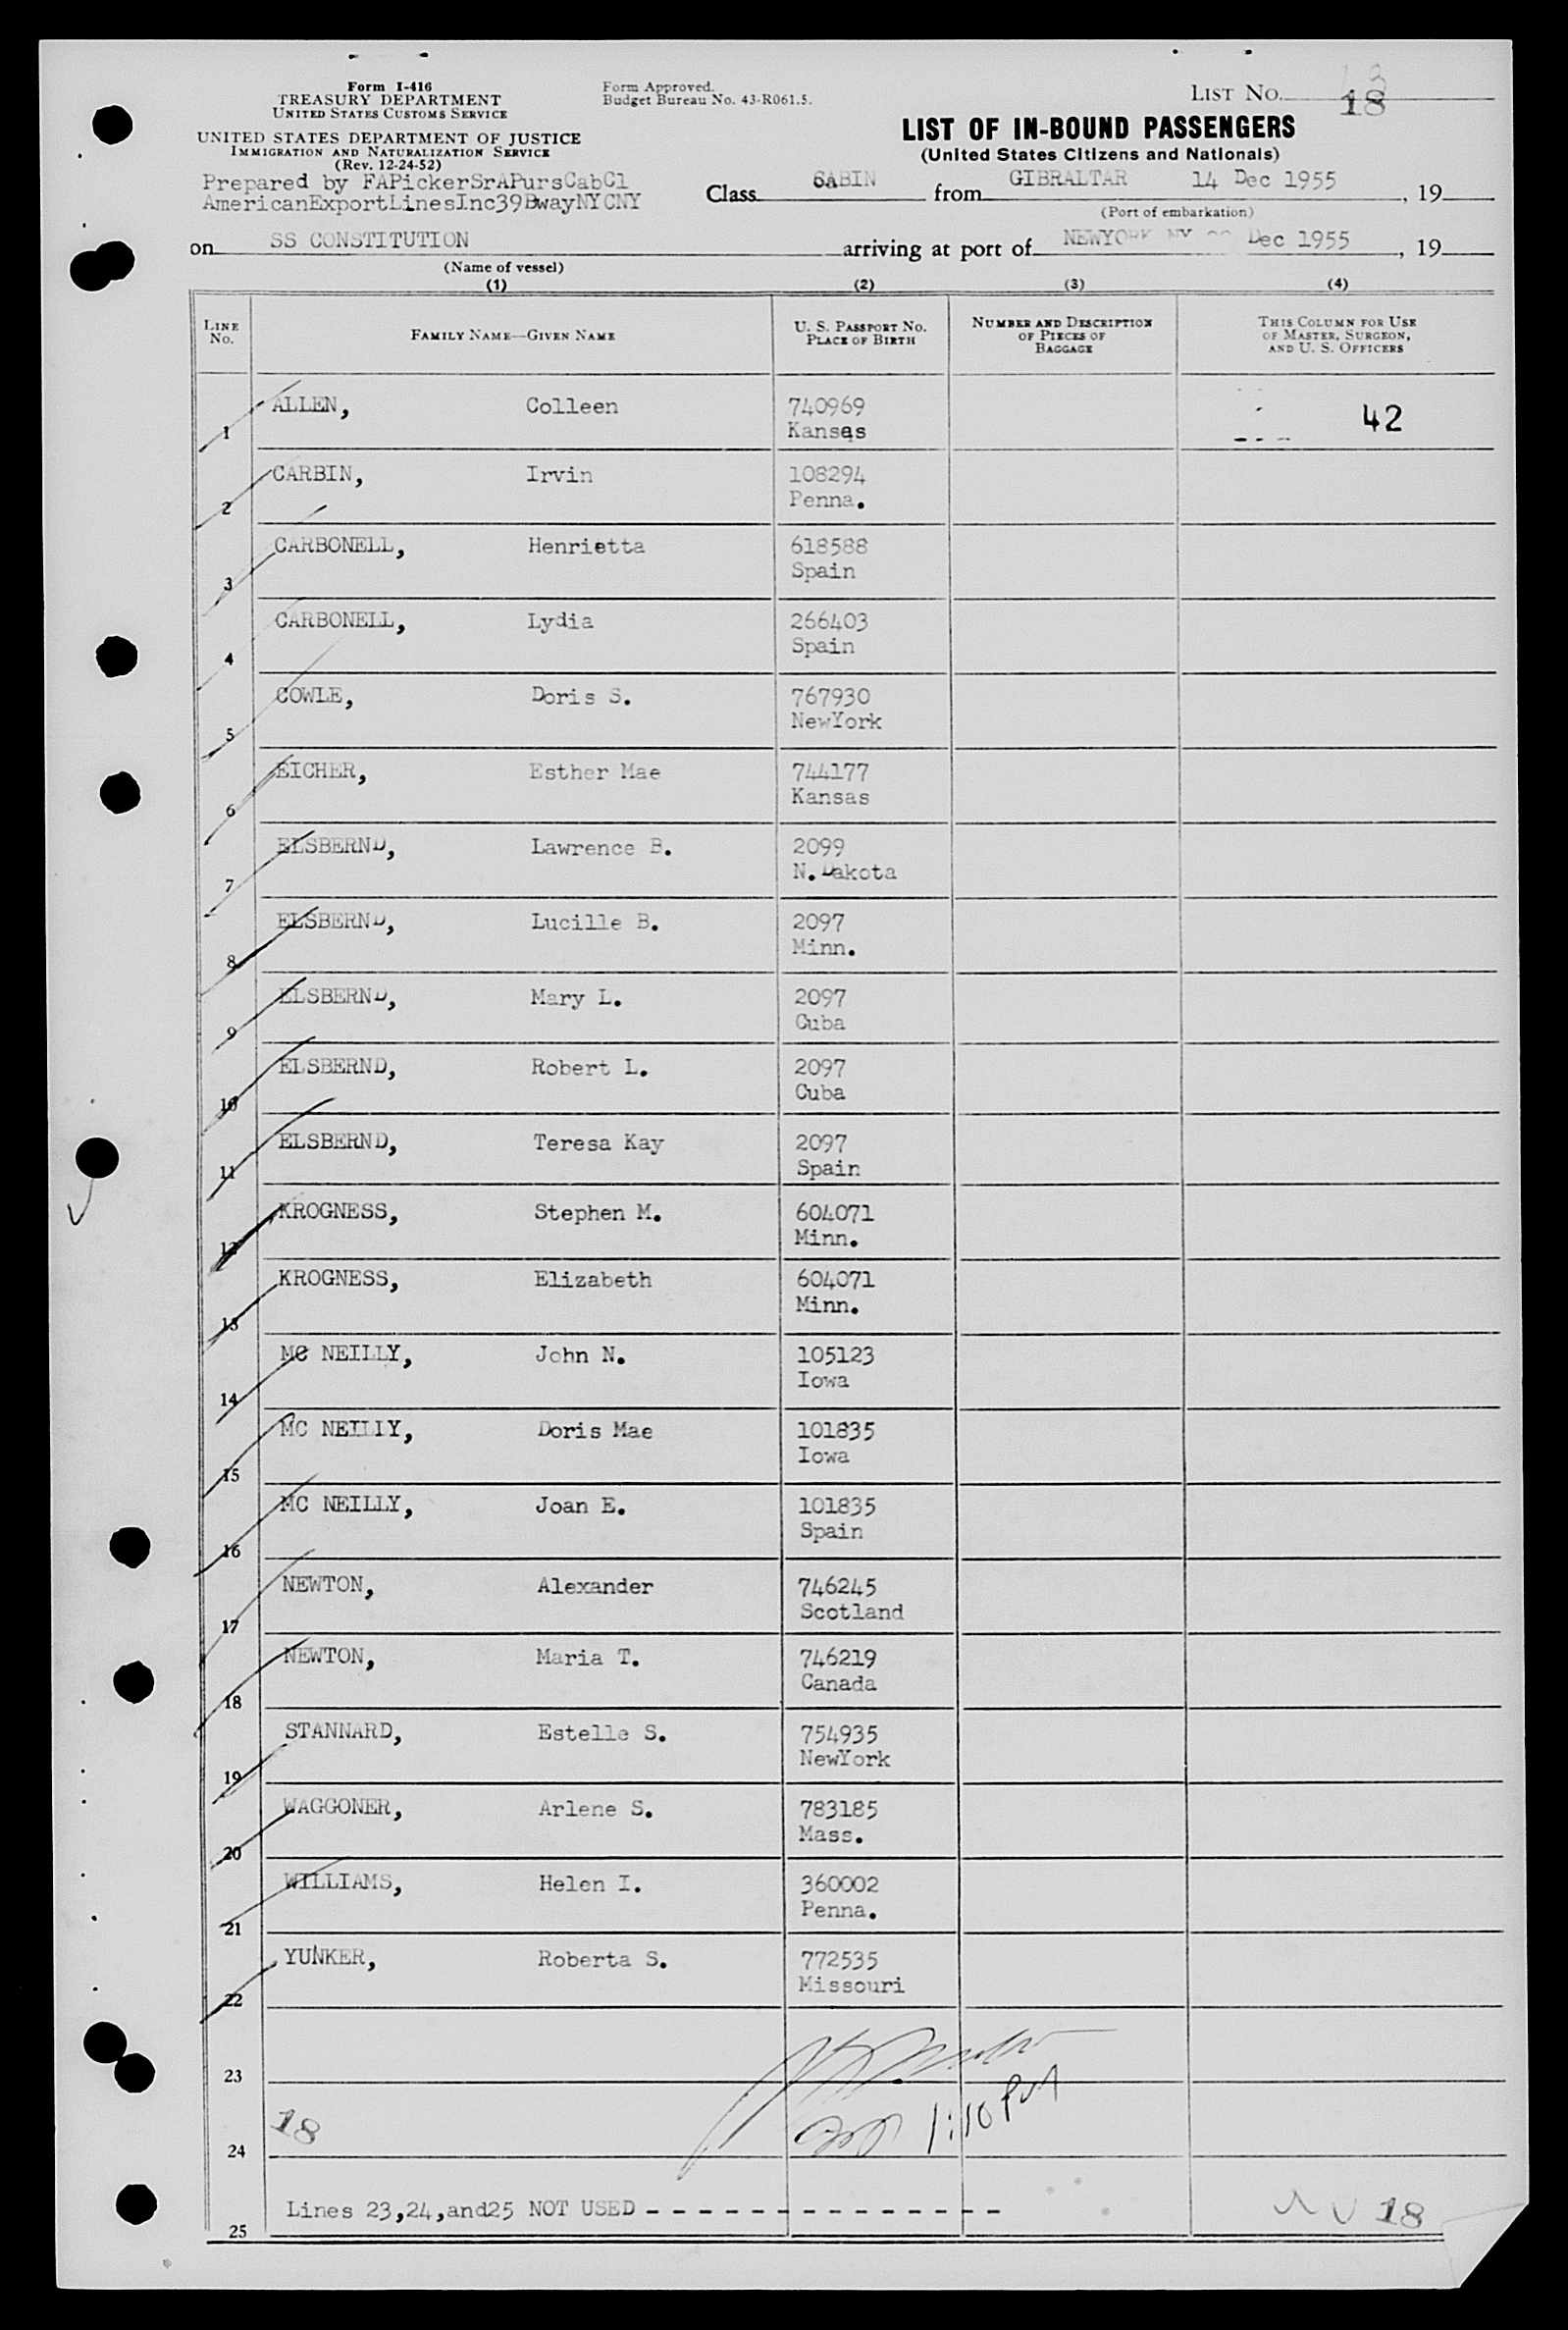 Form I-416
TREASURY DEPARTMENT
UNITED STATES CUSTOMS SERVICE
UNITED STATES DEPARTMENT OF JUSTICE
IMMIGRATION AND NATURALIZATION SERVICE
(Rev. 12-24-52)
Form Approved.
Budget Bureau No. 43-R061.5.
LIST NO. 18
LIST OF IN-BOUND PASSENGERS
(United States Citizens and Nationals)
Prepared by FAPickerSrAPursCabCl
AmericanExportLinesInc39BwayNYCNY
Class CABIN from GIBRALTAR 14 Dec 1955, 19
(Port of embarkation)
on SS CONSTITUTION arriving at port of NEWYORK NY Dec 1955, 19
(Name of vessel)
(1) (2) (3) (4)
LINE NO. FAMILY NAME—GIVEN NAME U. S. PASSPORT NO. PLACE OF BIRTH NUMBER AND DESCRIPTION OF PIECES OF BAGGAGE THIS COLUMN FOR USE OF MASTER, SURGEON, AND U. S. OFFICERS
ALLEN, Colleen 740969
1 Kansas 42
CARBIN, Irvin 108294
2 Penna.
CARBONELL, Henrietta 618588
3 Spain
CARBONELL, Lydia 266403
4 Spain
COWLE, Doris S. 767930
5 NewYork
EICHER, Esther Mae 744177
6 Kansas
ELSBERND, Lawrence B. 2099
7 N.Dakota
ELSBERND, Lucille B. 2097
8 Minn.
ELSBERND, Mary L. 2097
9 Cuba
ELSBERND, Robert L. 2097
10 Cuba
ELSBERND, Teresa Kay 2097
11 Spain
KROGNESS, Stephen M. 604071
12 Minn.
KROGNESS, Elizabeth 604071
13 Minn.
MC NEILLY, John N. 105123
14 Iowa
MC NEILLY, Doris Mae 101835
15 Iowa
MC NEILLY, Joan E. 101835
16 Spain
NEWTON, Alexander 746245
17 Scotland
NEWTON, Maria T. 746219
18 Canada
STANNARD, Estelle S. 754935
19 NewYork
WAGGONER, Arlene S. 783185
20 Mass.
WILLIAMS, Helen I. 360002
21 Penna.
YUNKER, Roberta S. 772535
22 Missouri
23
18 1:10 PM
24
Lines 23,24,and25 NOT USED - - - - - - - - - - - - - - 18
25